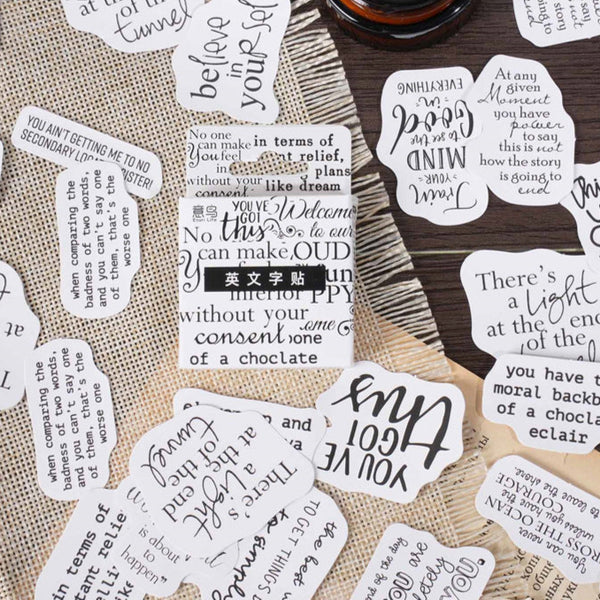 at the end
of the
tunnel
believe
in
yourself
YOU AIN'T GETTING ME TO NO
SECONDARY LOCA
ISTER!
when comparing the
badness of two words,
and you can't say one
of them, that's the
worse one
No one
can make
You feel
without your
in terms of
relief,
plans
like dream
意鸟
YOU'VE
GOT
this
Welcome
to our
No
can make
OUD
inferior
PPY
英文字贴
without your
consent
one
of a choclate
EVERYTHING
in
Good
to see the
MIND
YOUR
Train
At any
given
Moment
you have
power to
say this
is not
how the
story
is going to
end
There's
a Light
at the end
of the
you have t
moral backb
of a chocla
eclair
when comparing the
badness of two words,
and you can't say one
of them, that's the
worse one
There's
a Light
at the end
of the
tunnel
YOU'VE
GOT
this
to leave the shore.
unless you have the
COURAGE
ROSS THE OCEAN
in terms of
tant relief
is about
to
happen
TO GET THINGS D
the best
to simply
nd of the day